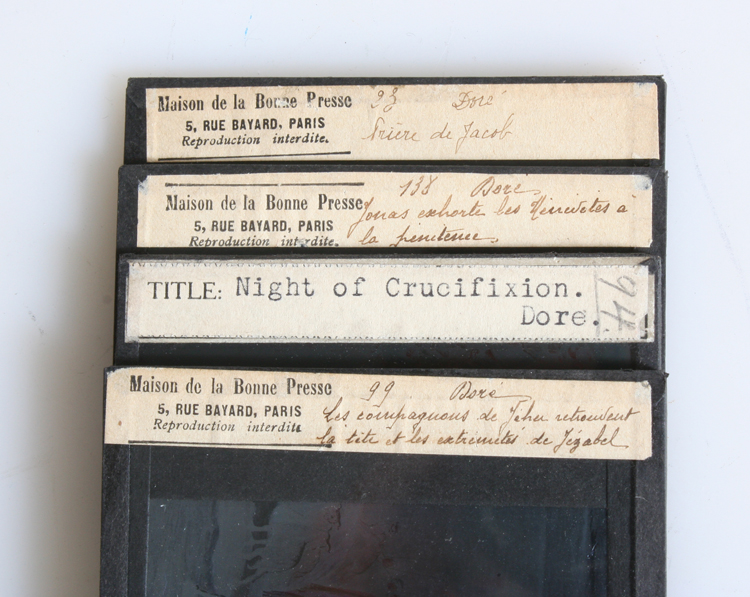 Maison de la Bonne Presse 93 Doré
5, RUE BAYARD, PARIS
Reproduction interdite. Prière de Jacob
Maison de la Bonne Presse 138 Doré
5, RUE BAYARD, PARIS Jonas exhorte les Ninivites à
Reproduction interdite. la pénitence.
TITLE: Night of Crucifixion.
Dore. 94
Maison de la Bonne Presse 99 Doré
5, RUE BAYARD, PARIS Les compagnons de Jéhu retrouvent
Reproduction interdite la tête et les extremités de Jezabel